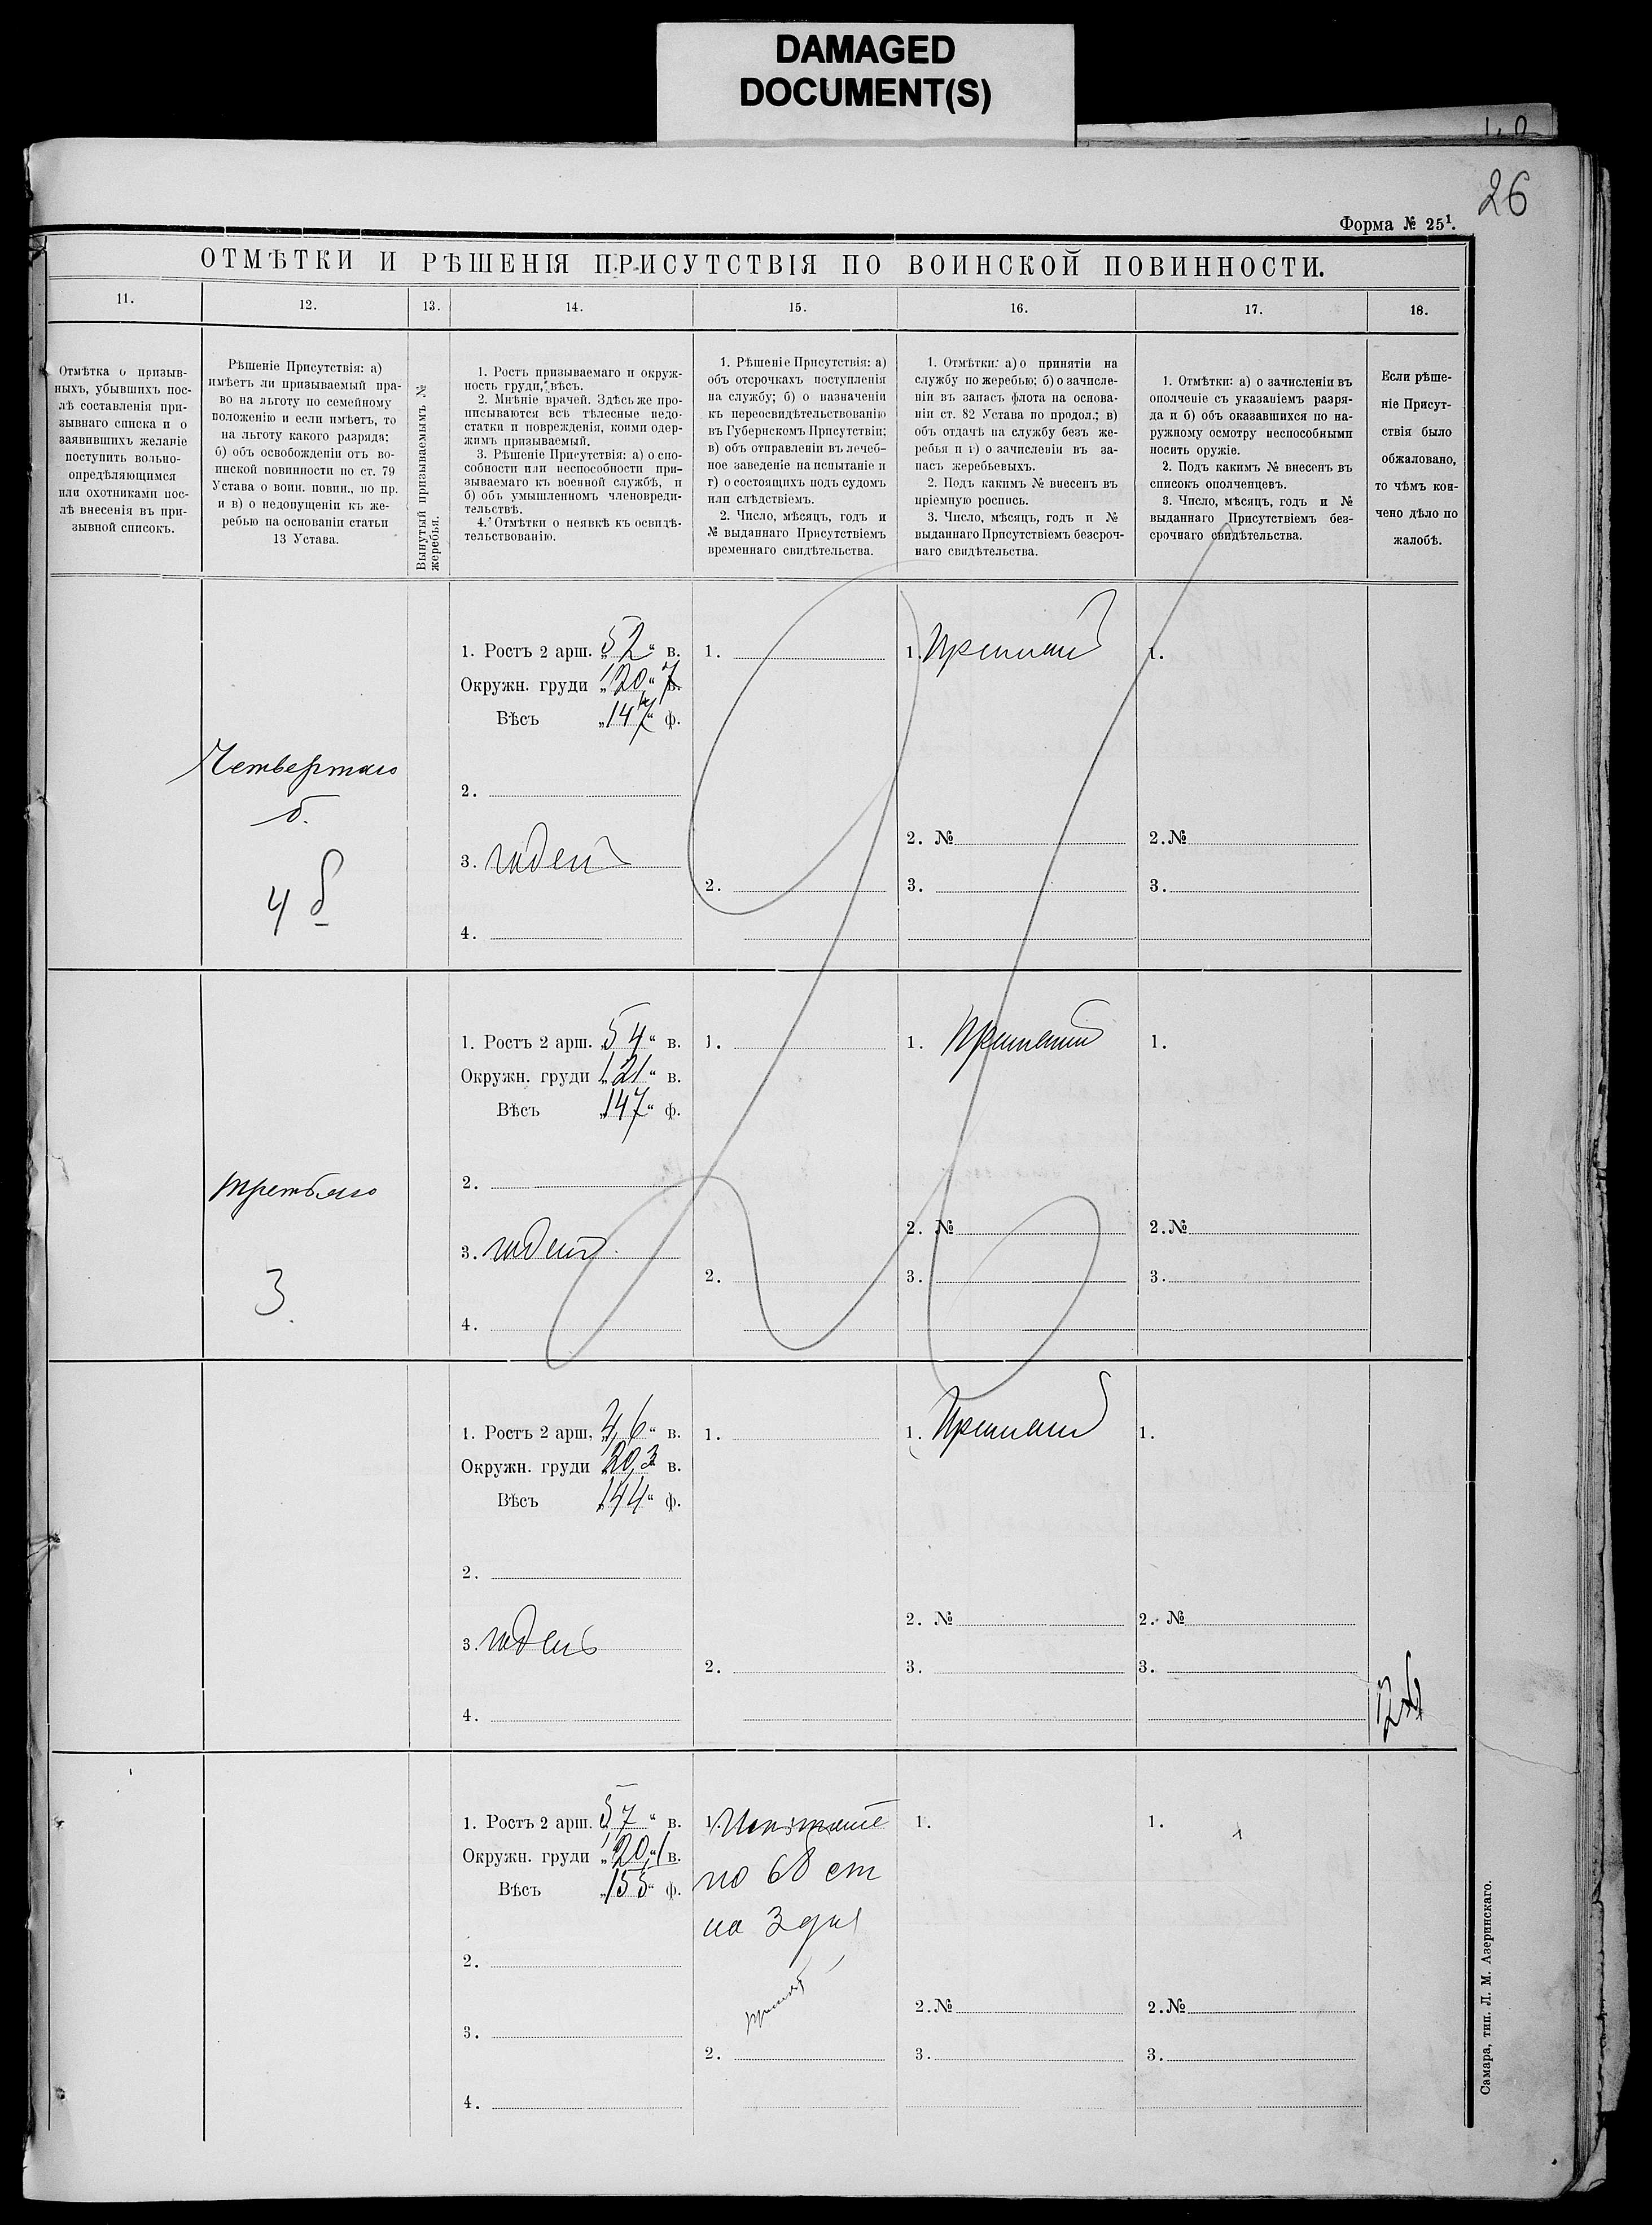 DAMAGED
DOCUMENT(S)
26
Форма № 25¹.
ОТМѢТКИ И РѢШЕНІЯ ПРИСУТСТВІЯ ПО ВОИНСКОЙ ПОВИННОСТИ.
11.
12.
13.
14.
15.
16.
17.
18.
Отмѣтка о призыв-
ныхъ, убывшихъ пос-
лѣ составленія при-
зывнаго списка и о
заявившихъ желаніе
поступить вольно-
опредѣляющимся
или охотниками пос-
лѣ внесенія въ при-
зывной списокъ.
Рѣшеніе Присутствія: а)
имѣетъ ли призываемый пра-
во на льготу по семейному
положенію и если имѣетъ, то
на льготу какого разряда;
б) объ освобожденіи отъ во-
инской повинности по ст. 79
Устава о воин. повин., по пр.
и в) о недопущеніи къ же-
ребью на основаніи статьи
13 Устава.
Вынутый призываемымъ №
жеребья.
1. Ростъ призываемаго и окруж-
ность груди, вѣсъ.
2. Мнѣніе врачей. Здѣсь же про-
писываются всѣ тѣлесные недо-
статки и поврежденія, коими одер-
жимъ призываемый.
3. Рѣшеніе Присутствія: а) о спо-
собности или неспособности при-
зываемаго къ военной службѣ, и
б) объ умышленномъ членовреди-
тельствѣ.
4. Отмѣтки о неявкѣ къ освидѣ-
тельствованію.
1. Рѣшеніе Присутствія: а)
объ отсрочкахъ поступленія
на службу; б) о назначеніи
къ переосвидѣтельствованію
въ Губернскомъ Присутствіи;
в) объ отправленіи въ лечеб-
ное заведеніе на испытаніе и
г) о состоящихъ подъ судомъ
или слѣдствіемъ.
2. Число, мѣсяцъ, годъ и
№ выданнаго Присутствіемъ
временнаго свидѣтельства.
1. Отмѣтки: а) о принятіи на
службу по жеребью; б) о зачисле-
ніи въ запасъ флота на основа-
ніи ст. 82 Устава по продол.; в)
объ отдачѣ на службу безъ же-
ребья и г) о зачисленіи въ за-
пасъ жеребьевыхъ.
2. Подъ какимъ № внесенъ въ
пріемную роспись.
3. Число, мѣсяцъ, годъ и №
выданнаго Присутствіемъ безсроч-
наго свидѣтельства.
1. Отмѣтки: а) о зачисленіи въ
ополченіе съ указаніемъ разря-
да и б) объ оказавшихся по на-
ружному осмотру неспособными
носить оружіе.
2. Подъ какимъ № внесенъ въ
списокъ ополченцевъ.
3. Число, мѣсяцъ, годъ и №
выданнаго Присутствіемъ без-
срочнаго свидѣтельства.
Если рѣше-
ніе Присут-
ствія было
обжаловано,
то чѣмъ кон-
чено дѣло по
жалобѣ.
Четвертаго
б.
4 б
1. Ростъ 2 арш. „52“ в.
Окружн. груди „20“ в.
Вѣсъ „147“ ф.
2.
3. годенъ
4.
1.
2.
1. Принятъ
2. №
3.
1.
2. №
3.
третьяго
3
1. Ростъ 2 арш. „54“ в.
Окружн. груди „21“ в.
Вѣсъ „147“ ф.
2.
3. годенъ
4.
1.
2.
1. Принятъ
2. №
3.
1.
2. №
3.
1. Ростъ 2 арш. 4,6“ в.
Окружн. груди „20,3 в.
Вѣсъ „144“ ф.
2.
3. годенъ
4.
1.
2.
1. Принятъ
2. №
3.
1.
2. №
3.
1. Ростъ 2 арш. 57“ в.
Окружн. груди „20,1 в.
Вѣсъ „155“ ф.
2.
3.
4.
1.
по 68 ст
на 3 дня
2.
1.
2. №
3.
1.
2. №
3.
Самара, тип. Л. М. Азеринскаго.